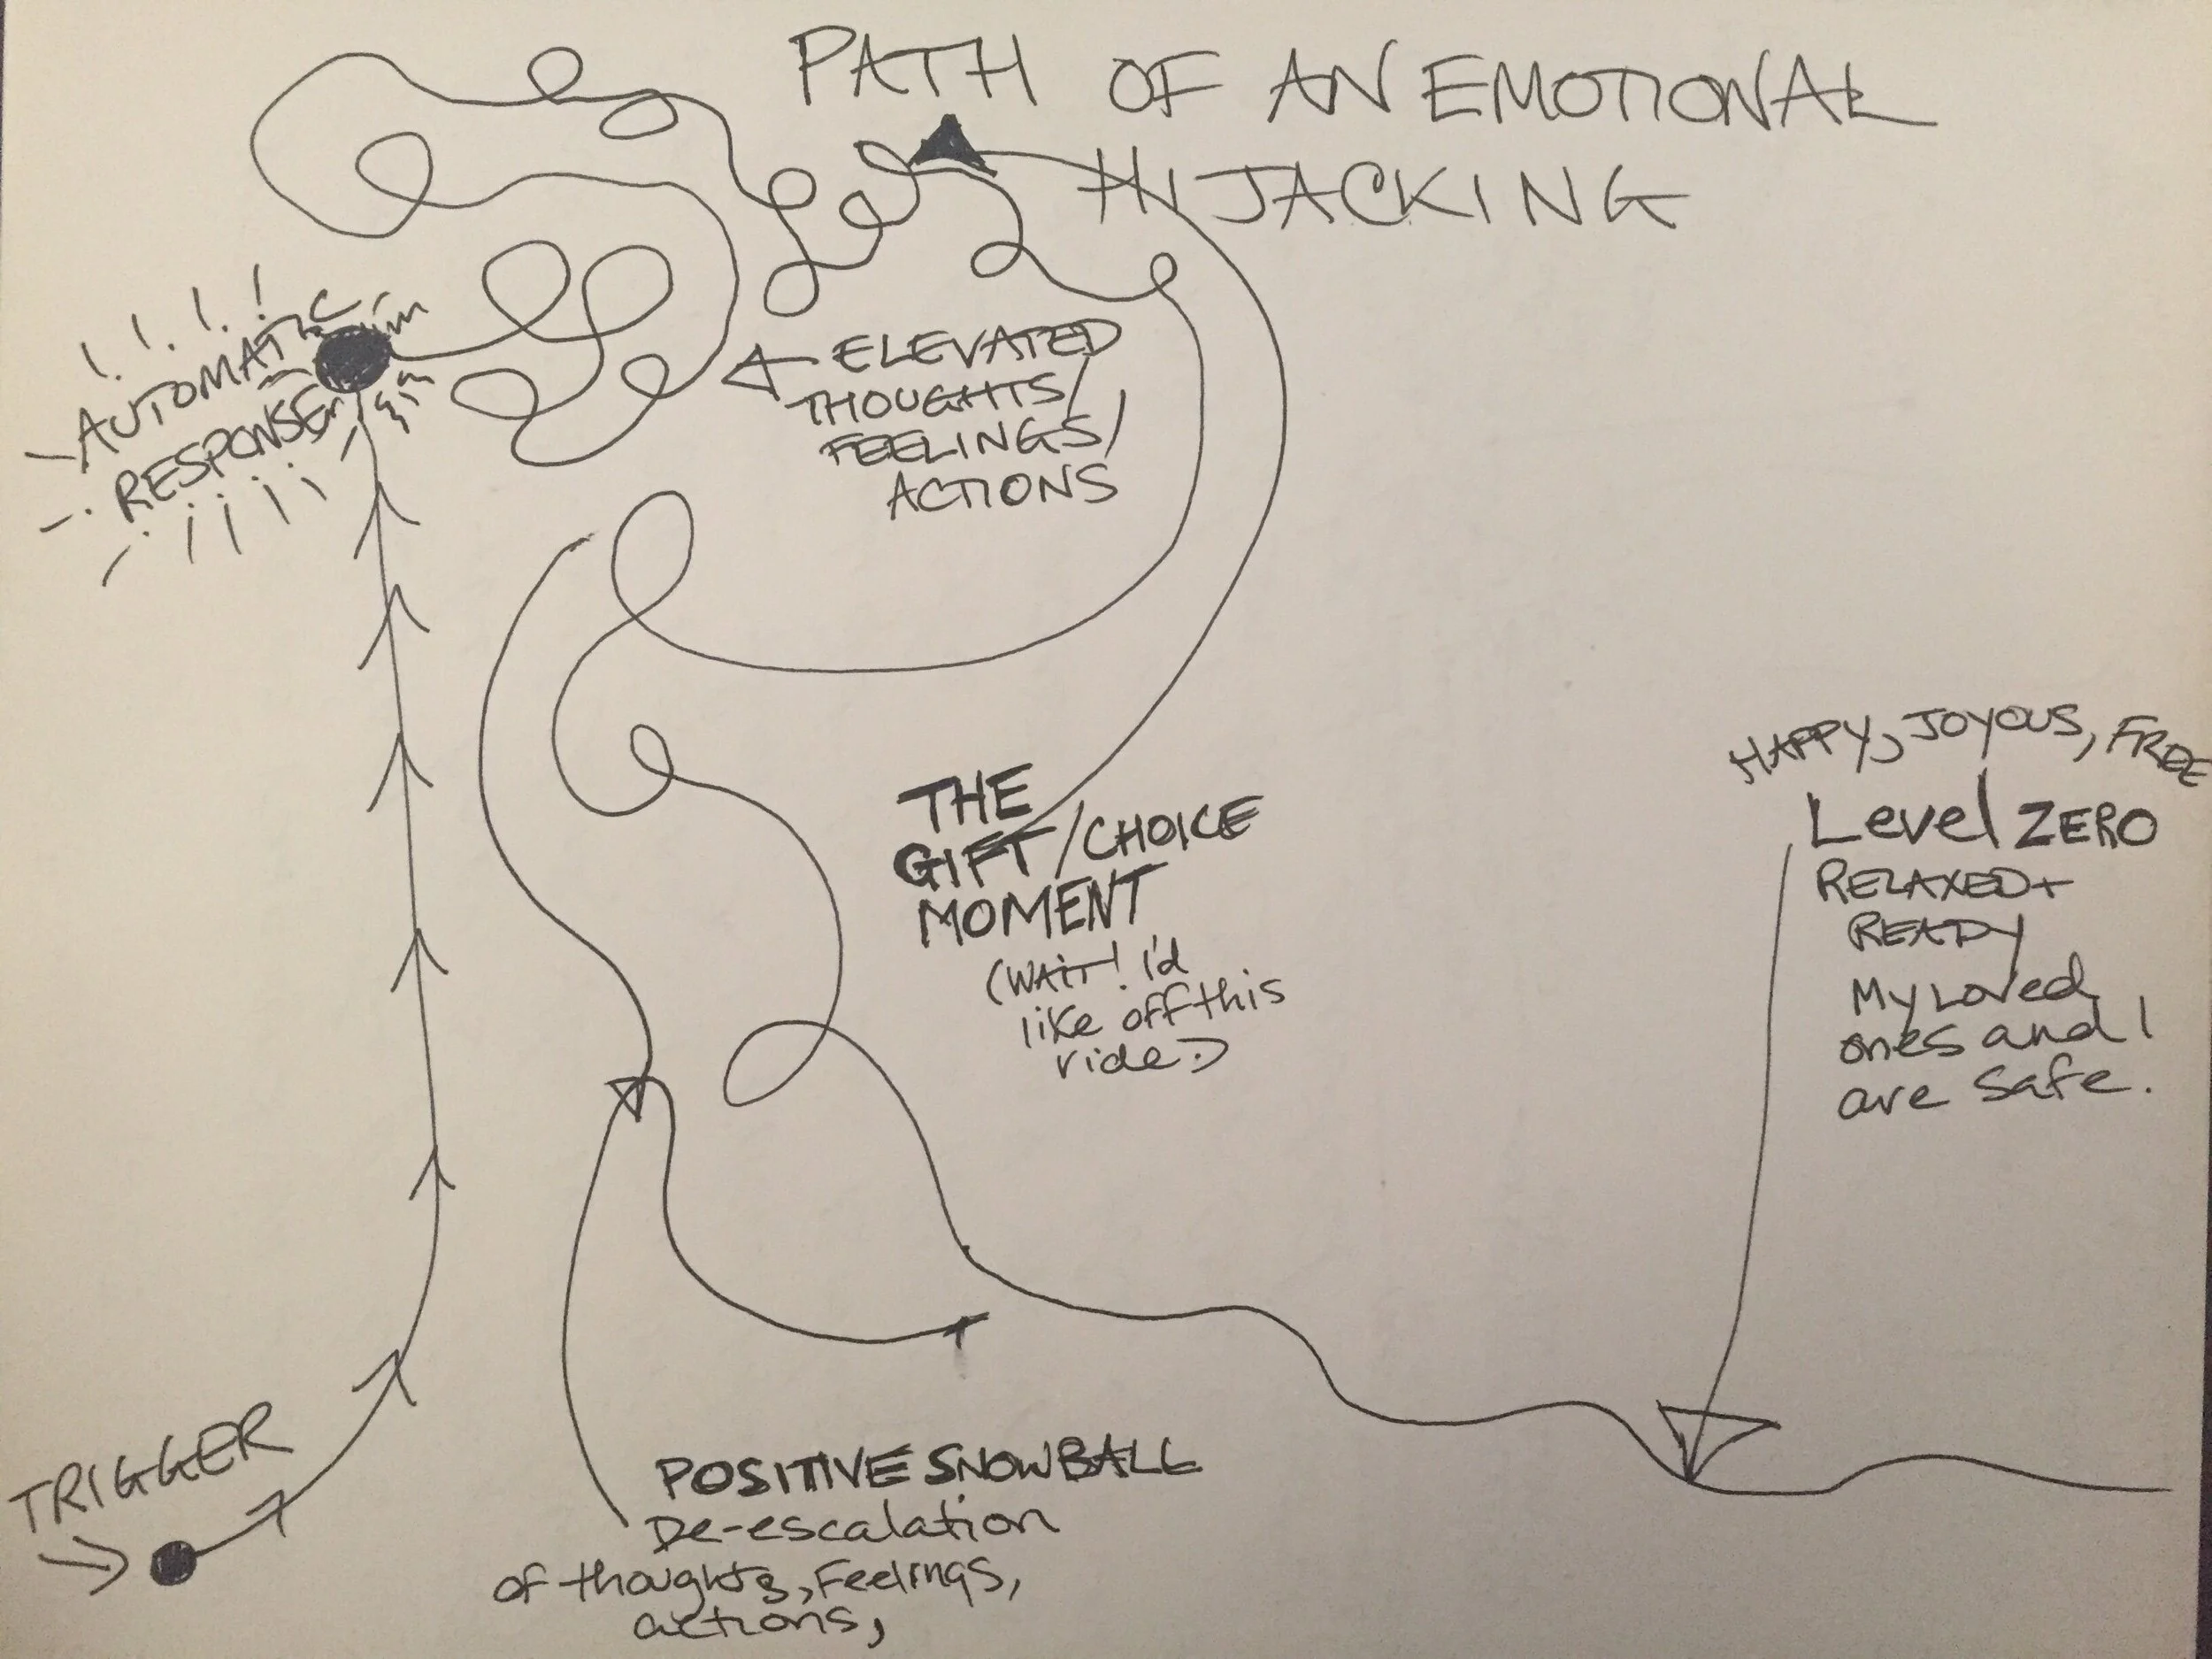 PATH OF AN EMOTIONAL
HIJACKING
AUTOMATIC
RESPONSE
ELEVATED
THOUGHTS/
FEELINGS/
ACTIONS
THE
GIFT/CHOICE
MOMENT
(WAIT! I'd
like off this
ride.)
HAPPY, JOYOUS, FREE
Level ZERO
RELAXED +
READY
My Loved
ones and I
are safe.
TRIGGER
POSITIVE SNOWBALL
De-escalation
of thoughts, Feelings,
actions,